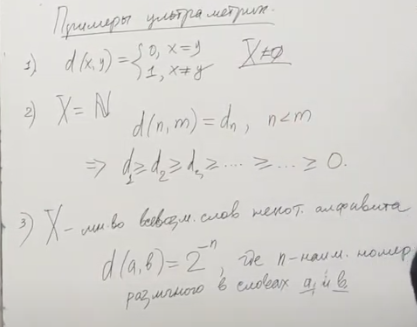 Примеры ультраметрик.
1) d(x,y) = { 0, x=y X≠∅
1, x≠y
2) X = ℕ
d(n,m) = dₙ, n<m
⇒ d₁ ≥ d₂ ≥ d₃ ≥ ---- ≥ ... ≥ 0.
3) X - мн-во всевозм. слов некот. алфавита
d(a,b) = 2⁻ⁿ, где n-наим. номер
различного в словах a и b